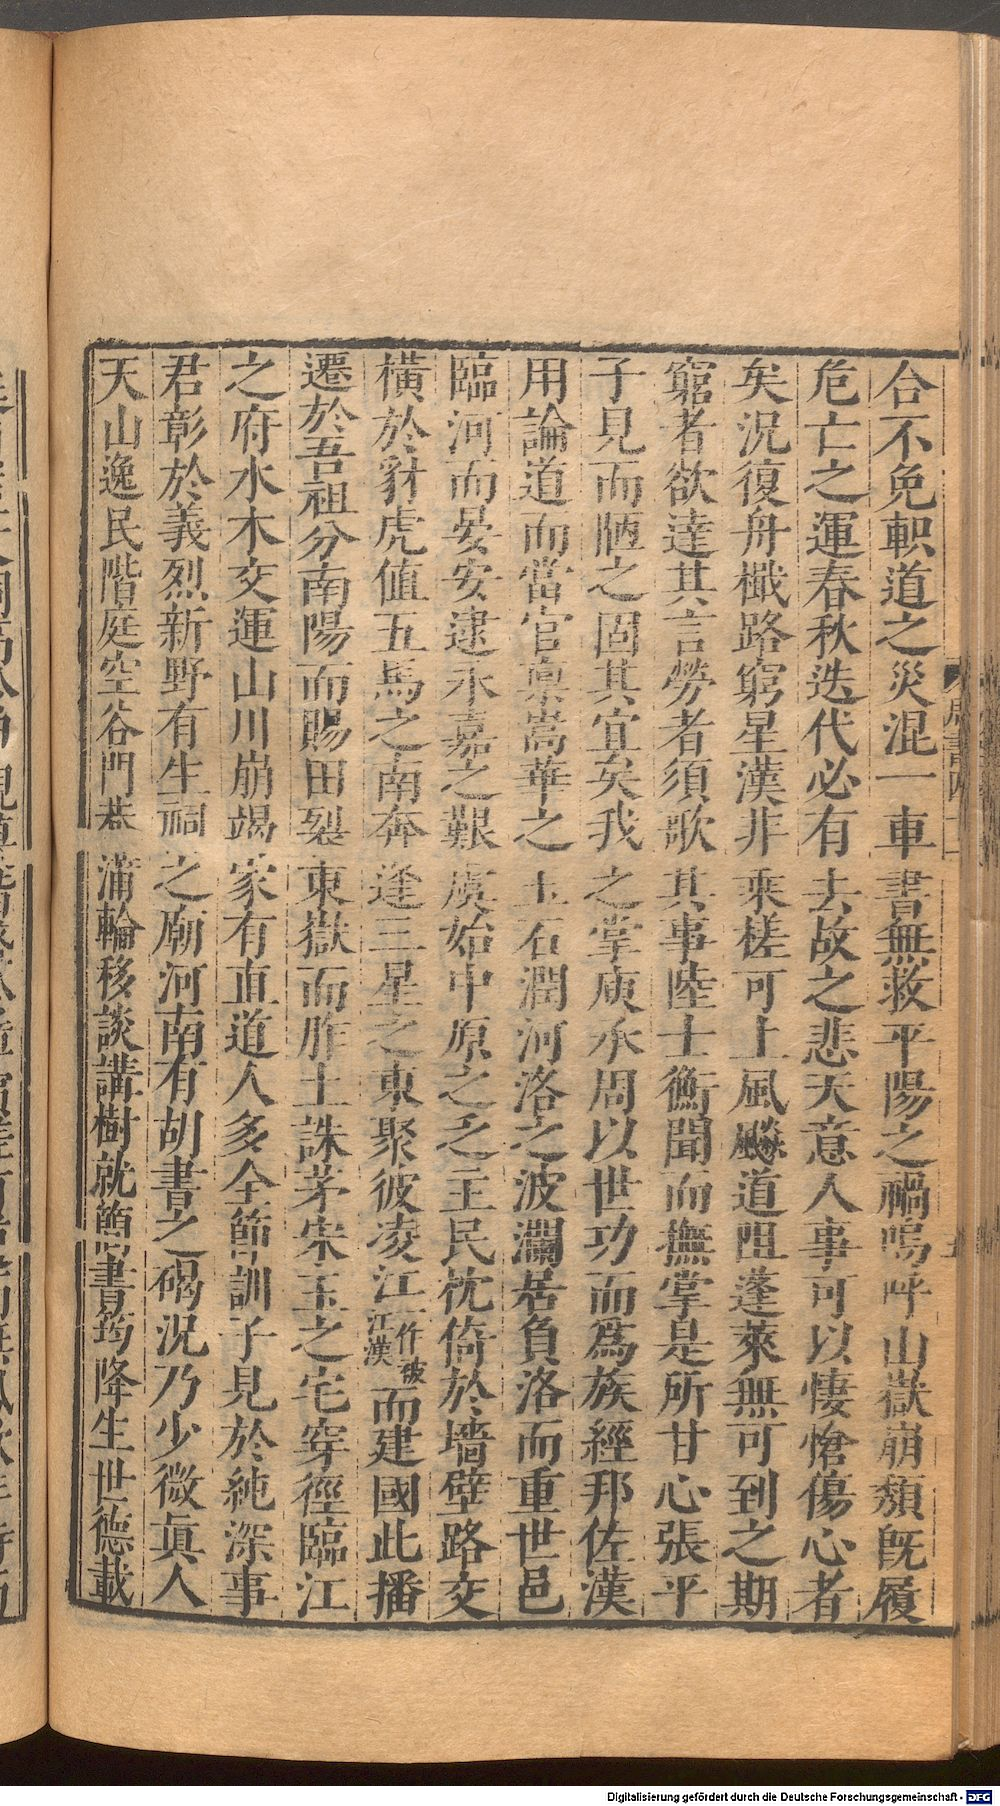 合不免軹道之災混一車書無救平陽之禍嗚呼山嶽崩頹旣履
危亡之運春秋迭代必有去故之悲天意人事可以悽愴傷心者
矣況復舟檝路窮星漢非乘槎可上風飈道阻蓬萊無可到之期
窮者欲達其言勞者須歌其事陸士衡聞而撫掌是所甘心張平
子見而陋之固其宜矣我之掌庾承周以世功而爲族經邦佐漢
用論道而當官稟嵩華之玉石潤河洛之波瀾居負洛而重世邑
臨河而晏安逮永嘉之艱虞始中原之乏主民枕倚於墻壁路交
橫於豺虎値五馬之南奔逢三星之東聚彼凌江一作彼江漢而建國此播
遷於吾祖分南陽而賜田裂東嶽而胙土誅茅宋玉之宅穿徑臨江
之府水木交運山川崩竭家有直道人多全節訓子見於純深事
君彰於義烈新野有生祠之廟河南有胡書之碣況乃少微眞人
天山逸民階庭空谷門巷蒲輪移談講樹就簡書筠降生世德載
Digitalisierung gefördert durch die Deutsche Forschungsgemeinschaft - DFG